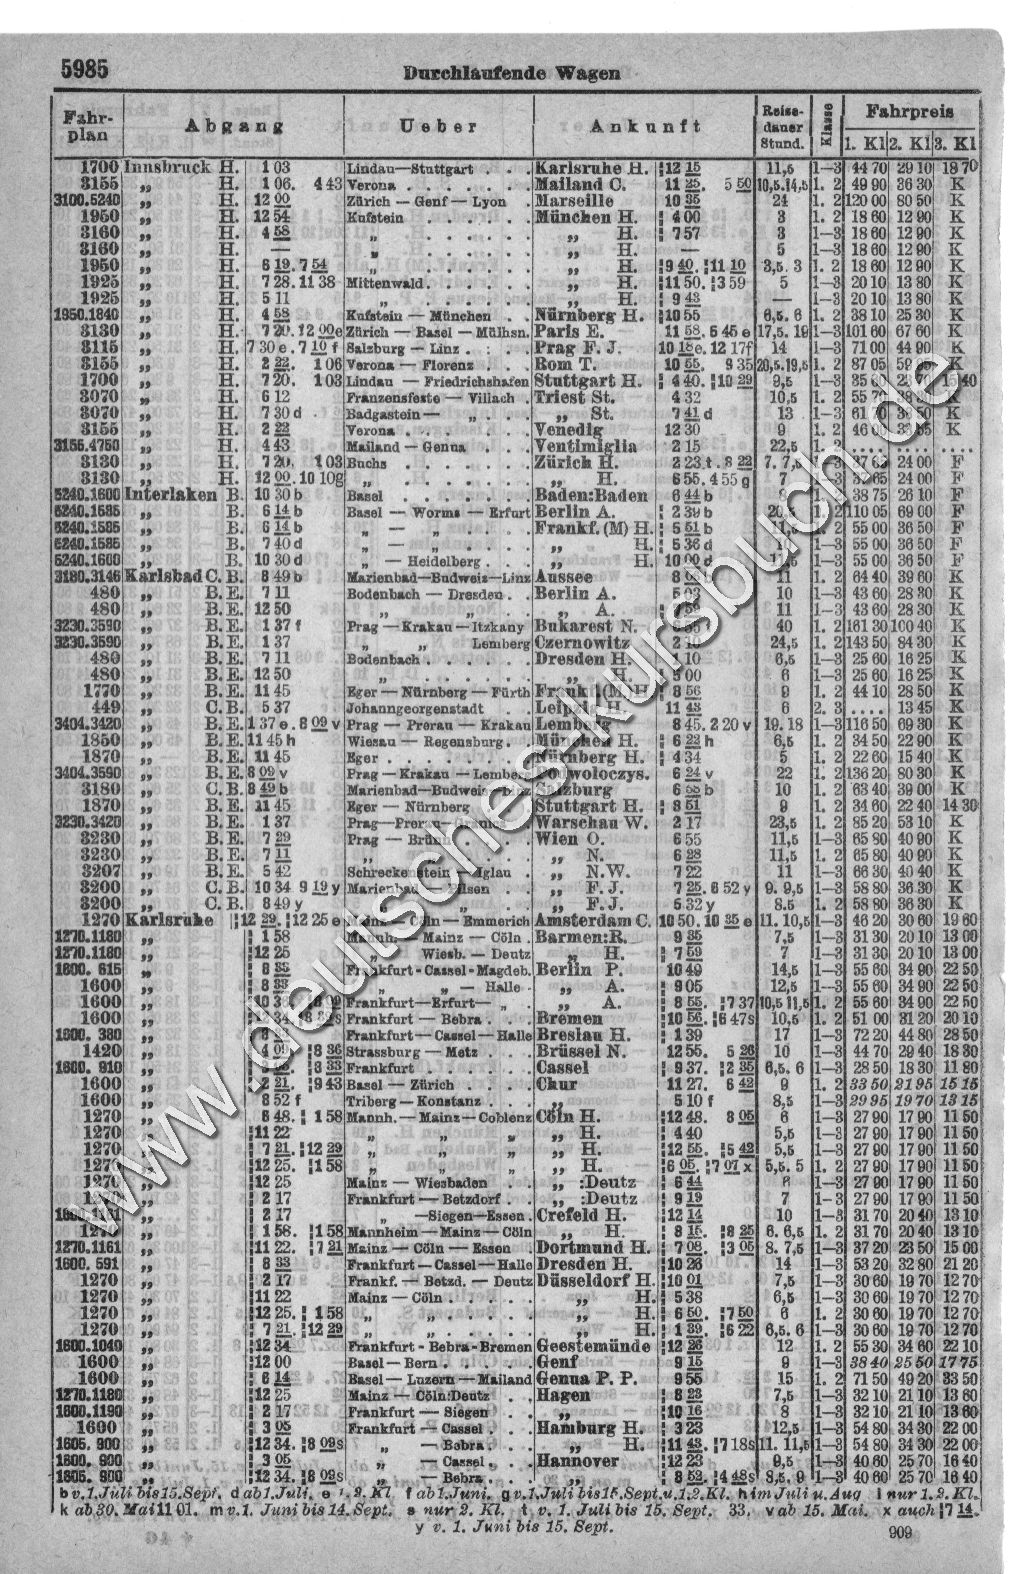 5985 Durchlaufende Wagen
Fahrplan Abgang Ueber Ankunft Reisedauer Stund. Klasse Fahrpreis
1. Kl 2. Kl 3. Kl
1700 Innsbruck H. 1 03 Lindau—Stuttgart . . . Karlsruhe H. 12 15 11,5 1—3 44 70 29 10 18 70
3155 „ H. 1 06. 4 43 Verona . . . . . . Mailand C. 11 25. 5 50 10,5.14,5 1. 2 49 90 36 30 K
3100.5240 „ H. 12 00 Zürich — Genf — Lyon . Marseille 10 35 24 1. 2 120 00 80 50 K
1950 „ H. 12 54 Kufstein . . . . . München H. 4 00 3 1. 2 18 60 12 90 K
3160 „ H. 4 58 „ . . . . . „ H. 7 57 3 1—3 18 60 12 90 K
3160 „ H. — „ . . . . . „ H. — 5 1—3 18 60 12 90 K
1950 „ H. 6 19. 7 54 „ . . . . . „ H. 9 40. 11 10 3,5. 3 1. 2 18 60 12 90 K
1925 „ H. 7 28. 11 38 Mittenwald. . . . . „ H. 11 50. 3 59 5 1—3 20 10 13 80 K
1925 „ H. 5 11 „ . . . . . „ H. 9 43 — 1—3 20 10 13 80 K
1950.1840 „ H. 4 58 Kufstein — München . . Nürnberg H. 10 55 6,5. 6 1. 2 38 10 25 30 K
3130 „ H. 7 20. 12 00e Zürich — Basel — Mülhsn. Paris E. 11 58. 6 45 e 17,5. 19 1—3 101 60 67 60 K
3115 „ H. 7 30 e. 7 10 f Salzburg — Linz . . . . Prag F. J. 10 18e. 12 17f 14 1—3 71 00 44 90 K
3155 „ H. 2 22. 1 06 Verona — Florenz . . . Rom T. 10 55. 9 35 20,5.19,5 1. 2 87 05
1700 „ H. 7 20. 1 03 Lindau — Friedrichshafen Stuttgart H. 4 40. 10 29 9,5 1—3
3070 „ H. 6 12 Franzensfeste — Villach . Triest St. 4 32 10,5 1. 2 K
3070 „ H. 7 30 d Badgastein — „ . „ St. 7 41 d 13 1—3 K
3155 „ H. 2 22 Verona . . . . . . Venedig 12 30 9 1. 2 K
3155.4750 „ H. 4 43 Mailand — Genua . . . Ventimiglia 2 15 22,5 1. 2 . . . .
3130 „ H. 7 20. 1 03 Buchs . . . . . . Zürich H. 2 23.t . 8 22 7. 7,5 24 00 F
3130 „ H. 12 00. 10 10g „ . . . . . . „ H. 6 55. 4 55 g 7 24 00 F
5240.1600 Interlaken B. 10 30 b Basel . . . . . . Baden:Baden 6 44 b 38 75 26 10 F
5240.1585 „ B. 6 14 b Basel — Worms — Erfurt Berlin A. 2 39 b 110 05 69 00 F
5240.1585 „ B. 6 14 b „ — „ . . . Frankf.(M) H. 5 51 b 1. 2 55 00 36 50 F
5240.1585 „ B. 7 40 d „ — „ . . . „ H. 5 36 d 1—3 55 00 36 50 F
5240.1600 „ B. 10 30 d „ — Heidelberg . . . „ H. 10 00 d 1—3 55 00 36 50 F
3180.3145 Karlsbad C. B. 8 49 b Marienbad—Budweis—Linz Aussee 11 1. 2 64 40 39 60 K
480 „ B. E. 7 11 Bodenbach — Dresden . . Berlin A. 5 03 10 1—3 43 60 28 30 K
480 „ B. E. 12 50 „ „ . . „ A. 11 1—3 43 60 28 30 K
3230.3590 „ B. E. 1 37 f Prag — Krakau — Itzkany Bukarest N. 40 1. 2 161 30 100 40 K
3230.3590 „ B. E. 1 37 „ „ Lemberg Czernowitz 24,5 1. 2 143 50 84 30 K
480 „ B. E. 7 11 Bodenbach . . . . . Dresden H. 1 10 6,5 1—3 25 60 16 25 K
480 „ B. E. 12 50 „ . . . . . „ H. 5 00 6 1—3 25 60 16 25 K
1770 „ B. E. 11 45 Eger — Nürnberg — Fürth Frankf.(M) H 8 56 9 1. 2 44 10 28 50 K
449 „ C. B. 5 37 Johanngeorgenstadt . . Leipzig H. 11 43 6 2. 3 . . . . 13 45 K
3404.3420 „ B. E. 1 37 e . 8 09 v Prag — Prerau — Krakau Lemberg 8 45. 2 20 v 19. 18 1—3 116 50 69 30 K
1850 „ B. E. 11 45 h Wiesau — Regensburg. . München H. 6 22 h 6,5 1. 2 34 50 22 90 K
1870 „ B. E. 11 45 Eger . . . . . . Nürnberg H. 4 34 5 1. 2 22 60 15 40 K
3404.3590 „ B. E. 8 09 v Prag — Krakau — Lemberg Podwoloczys. 6 24 v 22 1. 2 136 20 80 30 K
3180 „ C. B. 8 49 b Marienbad—Budweis—Linz Salzburg 6 55 b 10 1. 2 63 40 39 00 K
1870 „ B. E. 11 45 Eger — Nürnberg Stuttgart H. 8 51 9 1. 2 34 60 22 40 14 30
3230.3420 „ B. E. 1 37 Prag—Prerau—Granica Warschau W. 2 17 23,5 1. 2 85 20 53 10 K
3230 „ B. E. 7 29 Prag — Brünn . . . Wien O. 6 55 11,5 1. 2 65 80 40 90 K
3230 „ B. E. 7 11 „ „ . . . „ N. 6 28 11,5 1. 2 65 80 40 90 K
3207 „ B. E. 5 42 Schreckenstein — Iglau . „ N.W. 7 22 11 1. 2 66 30 40 40 K
3200 „ C. B. 10 34 9 19 y Marienbad — Pilsen . . „ F. J. 7 25. 6 52 y 9. 9,5 1—3 58 80 36 30 K
3200 „ C. B. 8 49 y „ „ . . „ F. J. 6 32 y 8.5 1. 2 58 80 36 30 K
1270 Karlsruhe 12 29. 12 25 e Mainz — Cöln — Emmerich Amsterdam C. 10 50. 10 35 e 11. 10,5 1—3 46 20 30 60 19 60
1270.1180 „ 1 58 Mannh. — Mainz — Cöln . Barmen:R. 9 35 7,5 1—3 31 30 20 10 13 00
1270.1180 „ 12 25 „ Wiesb. — Deutz „ H. 7 59 7 1—3 31 30 20 10 13 00
1600. 615 „ 8 33 Frankfurt - Cassel - Magdeb. Berlin P. 10 49 14,5 1—3 55 60 34 90 22 50
1600 „ 8 33 „ „ — Halle . „ A. 9 05 12,5 1—3 55 60 34 90 22 50
1600 „ Frankfurt—Erfurt— „ . „ A. 8 55. 7 37 10,5 11,5 1. 2 55 60 34 90 22 50
1600 „ Frankfurt — Bebra . . . Bremen 10 56. 6 47s 10,5 1. 2 51 00 31 20 20 10
1600. 380 „ Frankfurt—Cassel—Halle Breslau H. 1 39 17 1—3 72 20 44 80 28 50
1420 „ 4 09 8 36 Strassburg — Metz . . . Brüssel N. 12 55. 5 26 10 1—3 44 70 29 40 18 80
1600. 910 „ 8 33 Frankfurt . . . . . Cassel 9 37. 2 35 6,5. 6 1—3 28 50 18 30 11 80
1600 „ 2 21. 9 43 Basel — Zürich . . . . Chur 11 27. 6 42 9 1. 2 33 50 21 95 15 15
1600 „ 8 52 f Triberg — Konstanz . . . „ 5 10 f 8,5 1—3 29 95 19 70 13 15
1270 „ 8 48. 1 58 Mannh. — Mainz—Coblenz Cöln H. 12 48. 8 05 6 1—3 27 90 17 90 11 50
1270 „ 11 22 „ „ „ „ H. 4 40 5,5 1—3 27 90 17 90 11 50
1270 „ 7 21. 12 29 „ „ „ „ H. 12 55. 5 42 5,5 1—3 27 90 17 90 11 50
1270 „ 12 25. 1 58 „ „ „ „ H. 6 05. 7 07 x 5,5. 5 1. 2 27 90 17 90 11 50
1270 „ 12 25 Mainz — Wiesbaden . . „ :Deutz 6 44 6 1—3 27 90 17 90 11 50
„ 2 17 Frankfurt — Betzdorf . . „ :Deutz 9 19 7 1—3 27 90 17 90 11 50
„ 2 17 „ —Siegen—Essen . Crefeld H. 12 14 10 1—3 31 70 20 40 13 10
1270 „ 1 58. 1 58 Mannheim — Mainz — Cöln „ H. 8 15. 8 25 6. 6,5 1. 2 31 70 20 40 13 10
1270.1161 „ 11 22. 7 21 Mainz — Cöln — Essen Dortmund H. 7 08. 3 05 8. 7,5 1—3 37 20 23 50 15 00
1600. 591 „ 8 33 Frankfurt—Cassel—Halle Dresden H. 10 26 14 1—3 53 20 32 80 21 20
1270 „ 2 17 Frankf. — Betzd. — Deutz Düsseldorf H. 10 01 7,5 1—3 30 60 19 70 12 70
1270 „ 11 22 Mainz — Cöln . . . . . „ H. 5 38 6,5 1—3 30 60 19 70 12 70
1270 „ 12 25. 1 58 „ „ . . . . . „ H. 6 50. 7 50 6 1. 2 30 60 19 70 12 70
1270 „ 7 21. 12 29 „ „ . . . . . „ H. 1 39. 6 22 6,5. 6 1—3 30 60 19 70 12 70
1600.1040 „ 12 34 Frankfurt - Bebra - Bremen Geestemünde 12 26 12 1. 2 55 30 34 60 22 10
1600 „ 12 00 Basel — Bern . . . . Genf 9 15 9 1—3 38 40 25 50 17 75
1600 „ 6 14 Basel — Luzern — Mailand Genua P. P. 9 55 15 1. 2 71 50 49 20 33 50
1270.1180 „ 12 25 Mainz — Cöln:Deutz . . Hagen 8 23 7,5 1—3 32 10 21 10 13 60
1600.1190 „ 2 17 Frankfurt — Siegen . . „ 10 16 8 1—3 32 10 21 10 13 60
1600 „ 3 05 Frankfurt — Cassel . . . Hamburg H. 3 23 12,5 1—3 54 80 34 30 22 00
1605. 900 „ 12 34. 8 09s „ — Bebra . . . „ H. 11 43. 7 18s 11. 11,5 1—3 54 80 34 30 22 00
1600. 900 „ 3 05 „ — Cassel . . . Hannover 12 23 9,5 1—3 40 60 25 70 16 40
1605. 900 „ 12 34. 8 09s „ — Bebra . . . „ 8 52. 4 48s 8,5. 9 1—3 40 60 25 70 16 40
b v. 1. Juli bis 15. Sept. d ab 1. Juli. e 1. 2. Kl. f ab 1. Juni. g v. 1. Juli bis 15. Sept. u. 1. 2. Kl. h im Juli u. Aug i nur 1. 2. Kl.
k ab 30. Mai 11 01. m v. 1. Juni bis 14. Sept. s nur 2. Kl. t v. 1. Juli bis 15. Sept. 2 33. v ab 15. Mai. x auch 7 14.
y v. 1. Juni bis 15. Sept.
909
www.deutsches-kursbuch.de